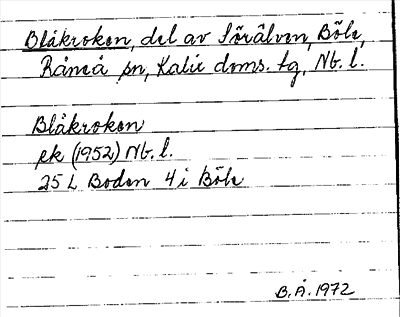 Blåkroken, del av Sörälven, Böle,
Råneå sn, Kalix doms. tg, Nb. l.
Blåkroken
ek (1952) Nb. l.
25 L Boden 4 i Böle
B.Å. 1972